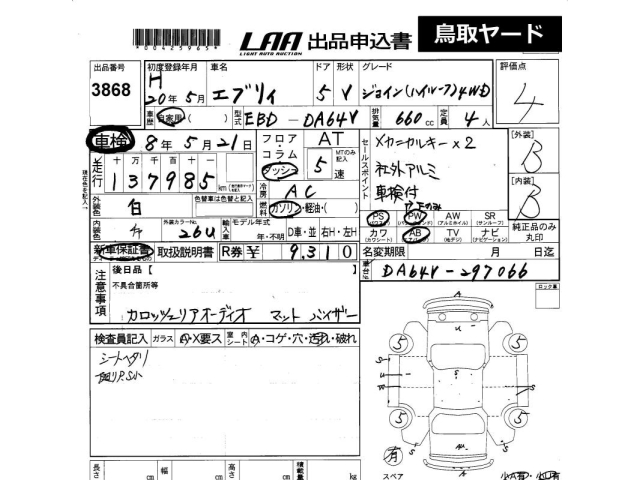 00425965
LAA LIGHT AUTO AUCTION 出品申込書 鳥取ヤード
出品番号 初度登録年月 車名 ドア 形状 グレード 評価点
3868 H 20年 5月 エブリィ 5 V ジョイン(ハイルーフ)4WD 4
車歴 自家用( ) 型式 EBD-DA64V 排気量 660cc 定員 4人
車検 8年 5月 21日 フロア・コラム・ダッシュ AT MTのみ記入 5速 セールスポイント メカニカルキー×2 [外装] B
走行 十 万 千 百 十 一 社外アルミ
現在色を記入 137985 km 冷房 AC 車検付 [内装] B
外装色 白 色替車は色替と記入 元色 燃料 ガソリン・軽油・( ) P.Fのみ
PS PW AW SR 純正品のみ丸印
(パワステ) (パワーウィンドウ) (アルミホイル) (サンルーフ)
内装色 外装カラーNo. 26U 輸入車 モデル年式 年・不明 D車・並 右H・左H カワ AB TV ナビ
(カワシート) (エアバッグ) (地デジ) (ナビゲーション)
新車保証書 取扱説明書 R券 ¥ 9,310 名変期限 月 日迄
注意事項 後日品【 】 車台No. DA64V-297066
不具合箇所等 ロック車
カロッツェリアオーディオ マット バイザー
検査員記入 ガラス A・X要ス 室内シート A・コゲ・穴・汚れ・破れ
シートヘタリ
A
U
5 5
S S
U
S
5 5
S S
AU
A
有
スペア
長さ cm 幅 cm 高さ cm 積載量 kg 小A有・小U有